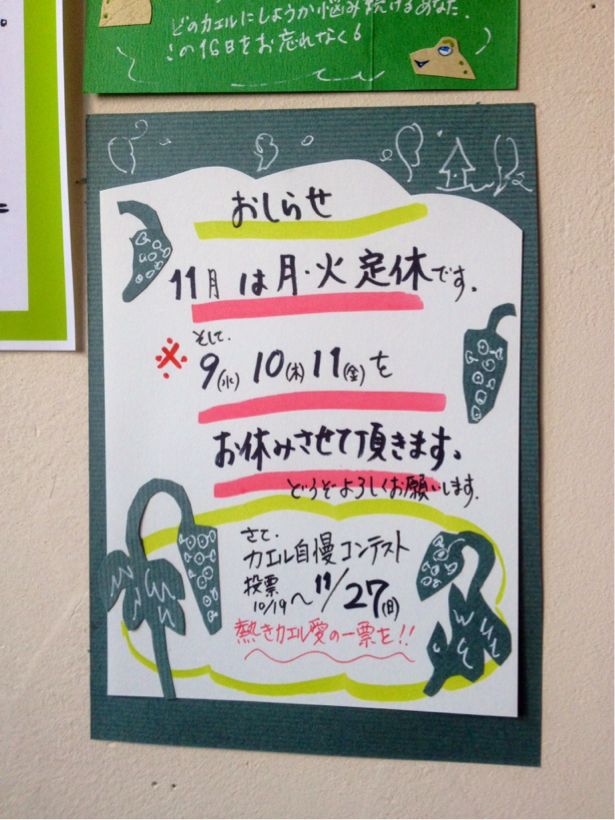 どのカエルにしようか悩み続けるあなた.
この16日をお忘れなく。
おしらせ
11月は月・火定休です.
そして.
※ 9(水) 10(木) 11(金)を
お休みさせて頂きます。
どうぞよろしくお願いします.
さて.
カエル自慢コンテスト
投票
10/19〜11/27(日)
熱きカエル愛の一票を!!